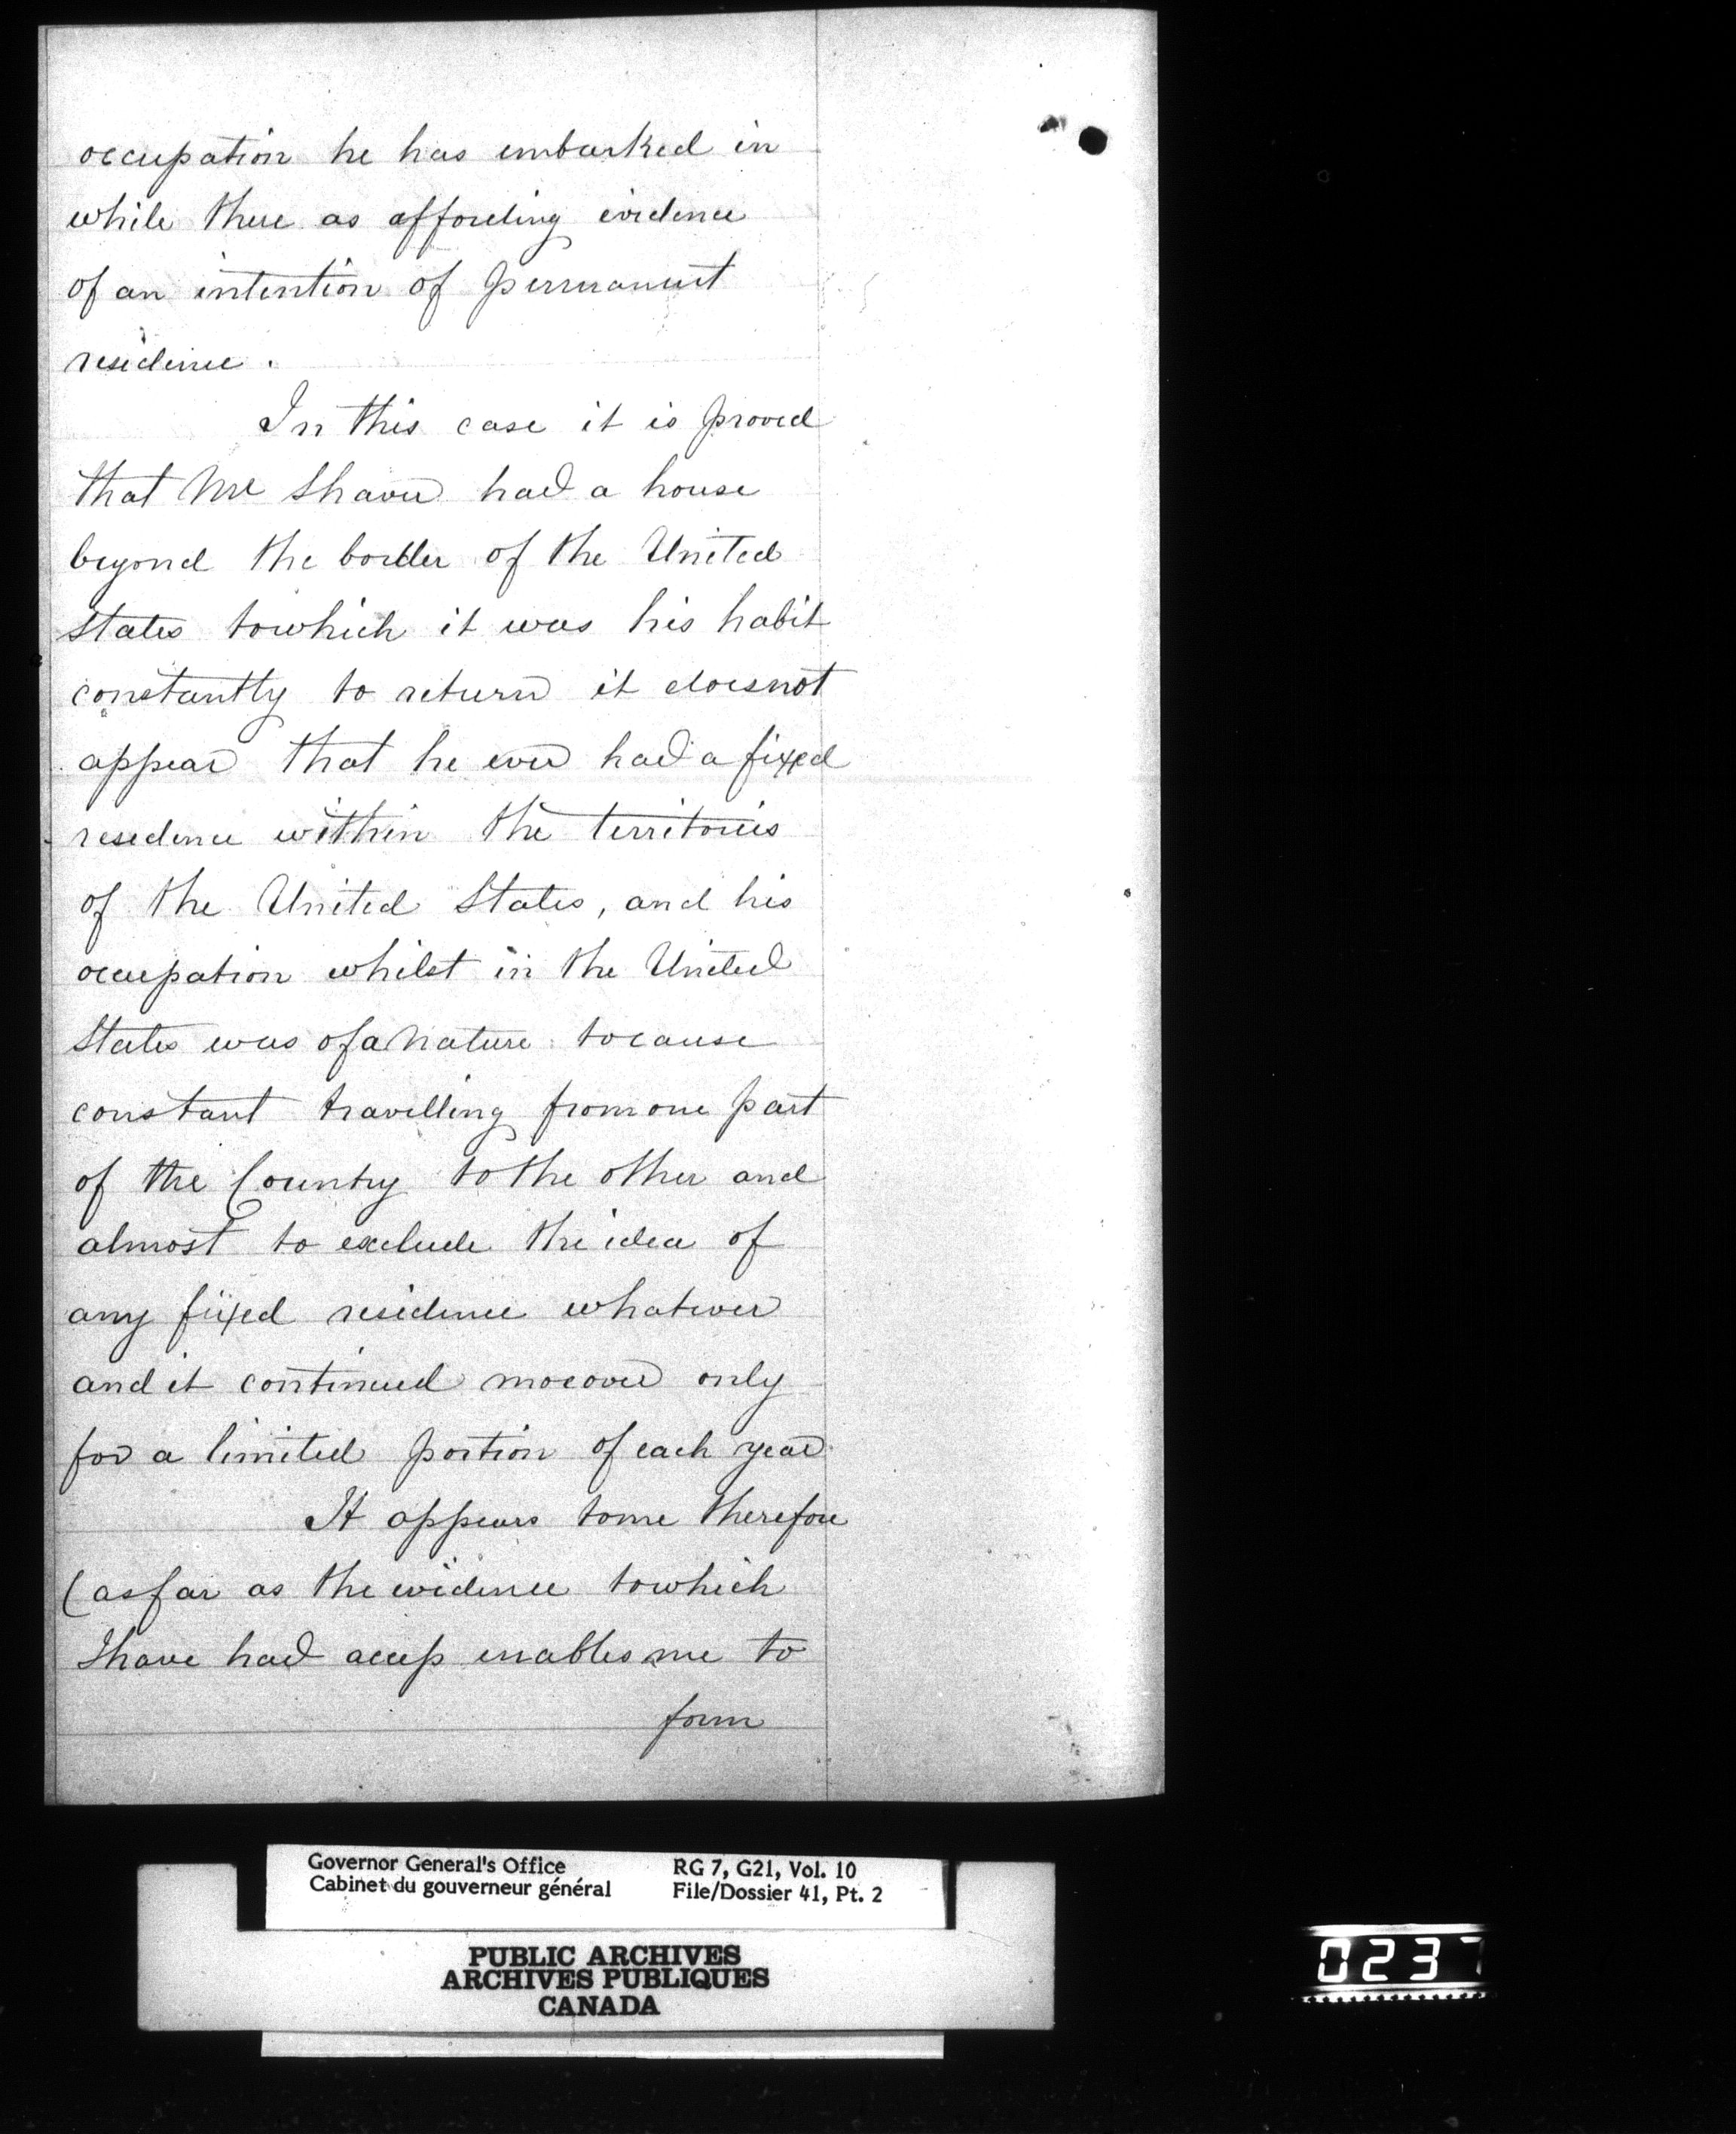 occupation he has embarked in
while there as affording evidence
of an intention of permanent
residence.
In this case it is proved
that Mr Shaver had a house
beyond the border of the United
States to which it was his habit
constantly to return it does not
appear that he ever had a fixed
residence within the territories
of the United States, and his
occupation whilst in the United
States was of a nature to cause
constant travelling from one part
of the Country to the other and
almost to exclude the idea of
any fixed residence whatever
and it continued moreover only
for a limited portion of each year
It appears to me therefore
(as far as the evidence to which
I have had access enables me to
form
Governor General's Office RG 7, G21, Vol. 10
Cabinet du gouverneur général File/Dossier 41, Pt. 2
PUBLIC ARCHIVES
ARCHIVES PUBLIQUES
CANADA
0237